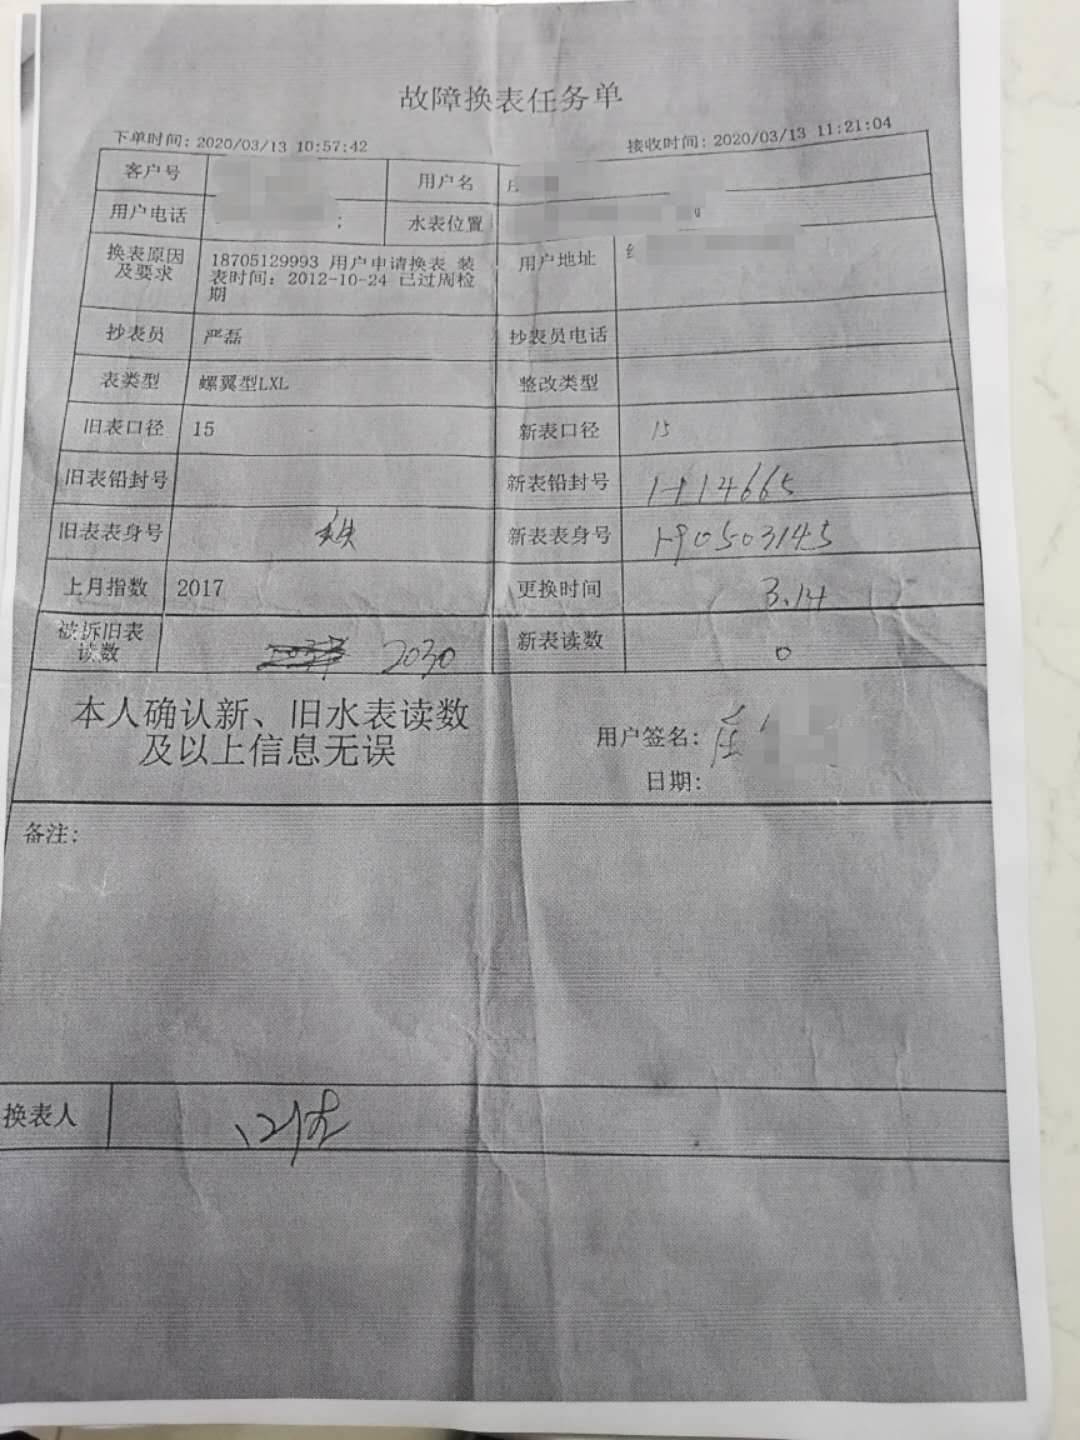 故障换表任务单
下单时间: 2020/03/13 10:57:42
接收时间: 2020/03/13 11:21:04
客户号
用户名
用户电话
;
水表位置
换表原因及要求
18705129993 用户申请换表 装
表时间: 2012-10-24 已过周检
期
用户地址
抄表员 严磊
抄表员电话
表类型 螺翼型LXL
整改类型
旧表口径 15
新表口径 15
旧表铅封号
新表铅封号
旧表表身号
新表表身号
上月指数 2017
更换时间 3.14
被拆旧表读数 2030
新表读数 0
本人确认新、旧水表读数
及以上信息无误
用户签名:
日期:
备注:
换表人